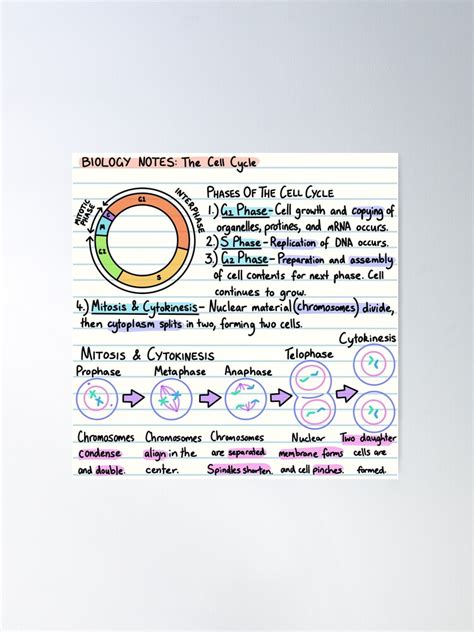 BIOLOGY NOTES: The Cell Cycle
MITOTIC PHASE
INTERPHASE
G1
C
M
G2
S
PHASES OF THE CELL CYCLE
1.) G1 Phase- Cell growth and copying of
organelles, protines, and mRNA occurs.
2.) S Phase- Replication of DNA occurs.
3.) G2 Phase- Preparation and assembly
of cell contents for next phase. Cell
continues to grow.
4.) Mitosis & Cytokinesis- Nuclear material (chromosomes) divide,
then cytoplasm splits in two, forming two cells.
MITOSIS & CYTOKINESIS
Prophase
Metaphase
Anaphase
Telophase
Cytokinesis
Chromosomes
condense
and double.
Chromosomes
align in the
center.
Chromosomes
are separated.
Spindles shorten.
Nuclear
membrane forms
and cell pinches.
Two daughter
cells are
formed.